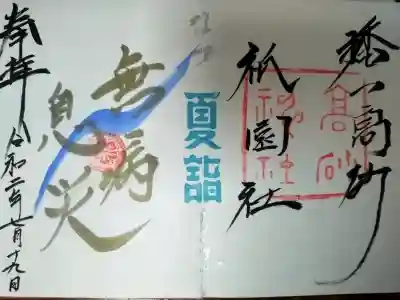 播州高砂
高砂
神社
祇園社
夏詣
無病
息災
奉拝
令和二年七月十九日